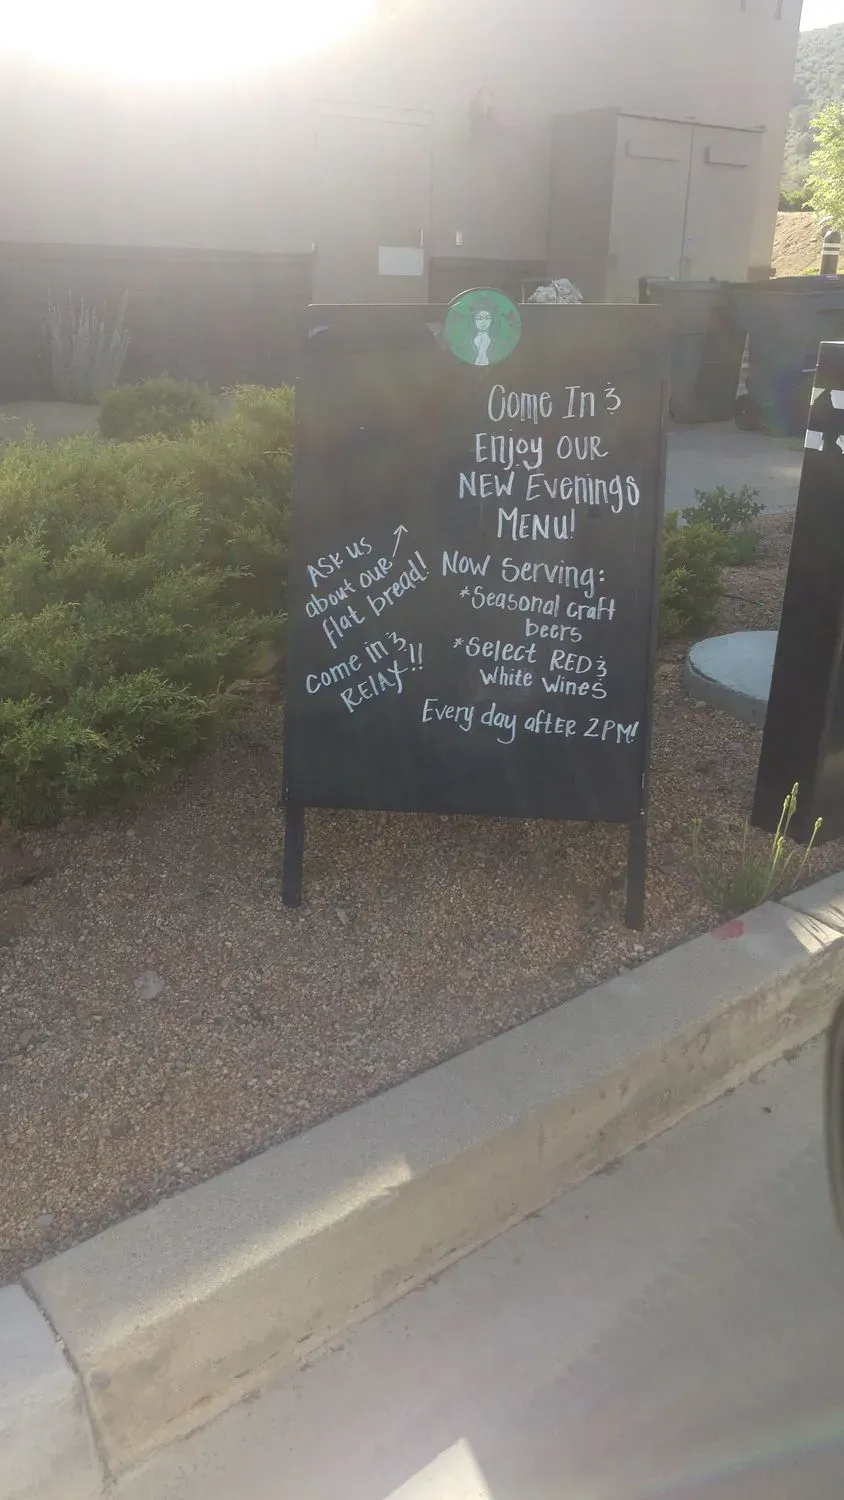 Come In &
Enjoy our
NEW Evenings
MENU!
Now Serving:
*Seasonal craft
beers
*Select RED &
White wines
Every day after 2PM!
Ask us
about our
flat bread!
come in &
RELAX!!